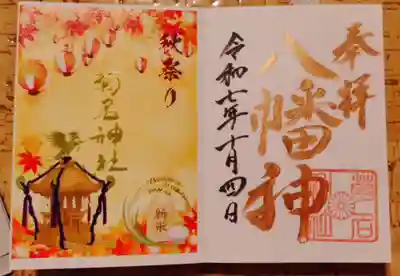 奉拝
八幡神
令和七年十月四日
秋祭り
菊名神社
新米